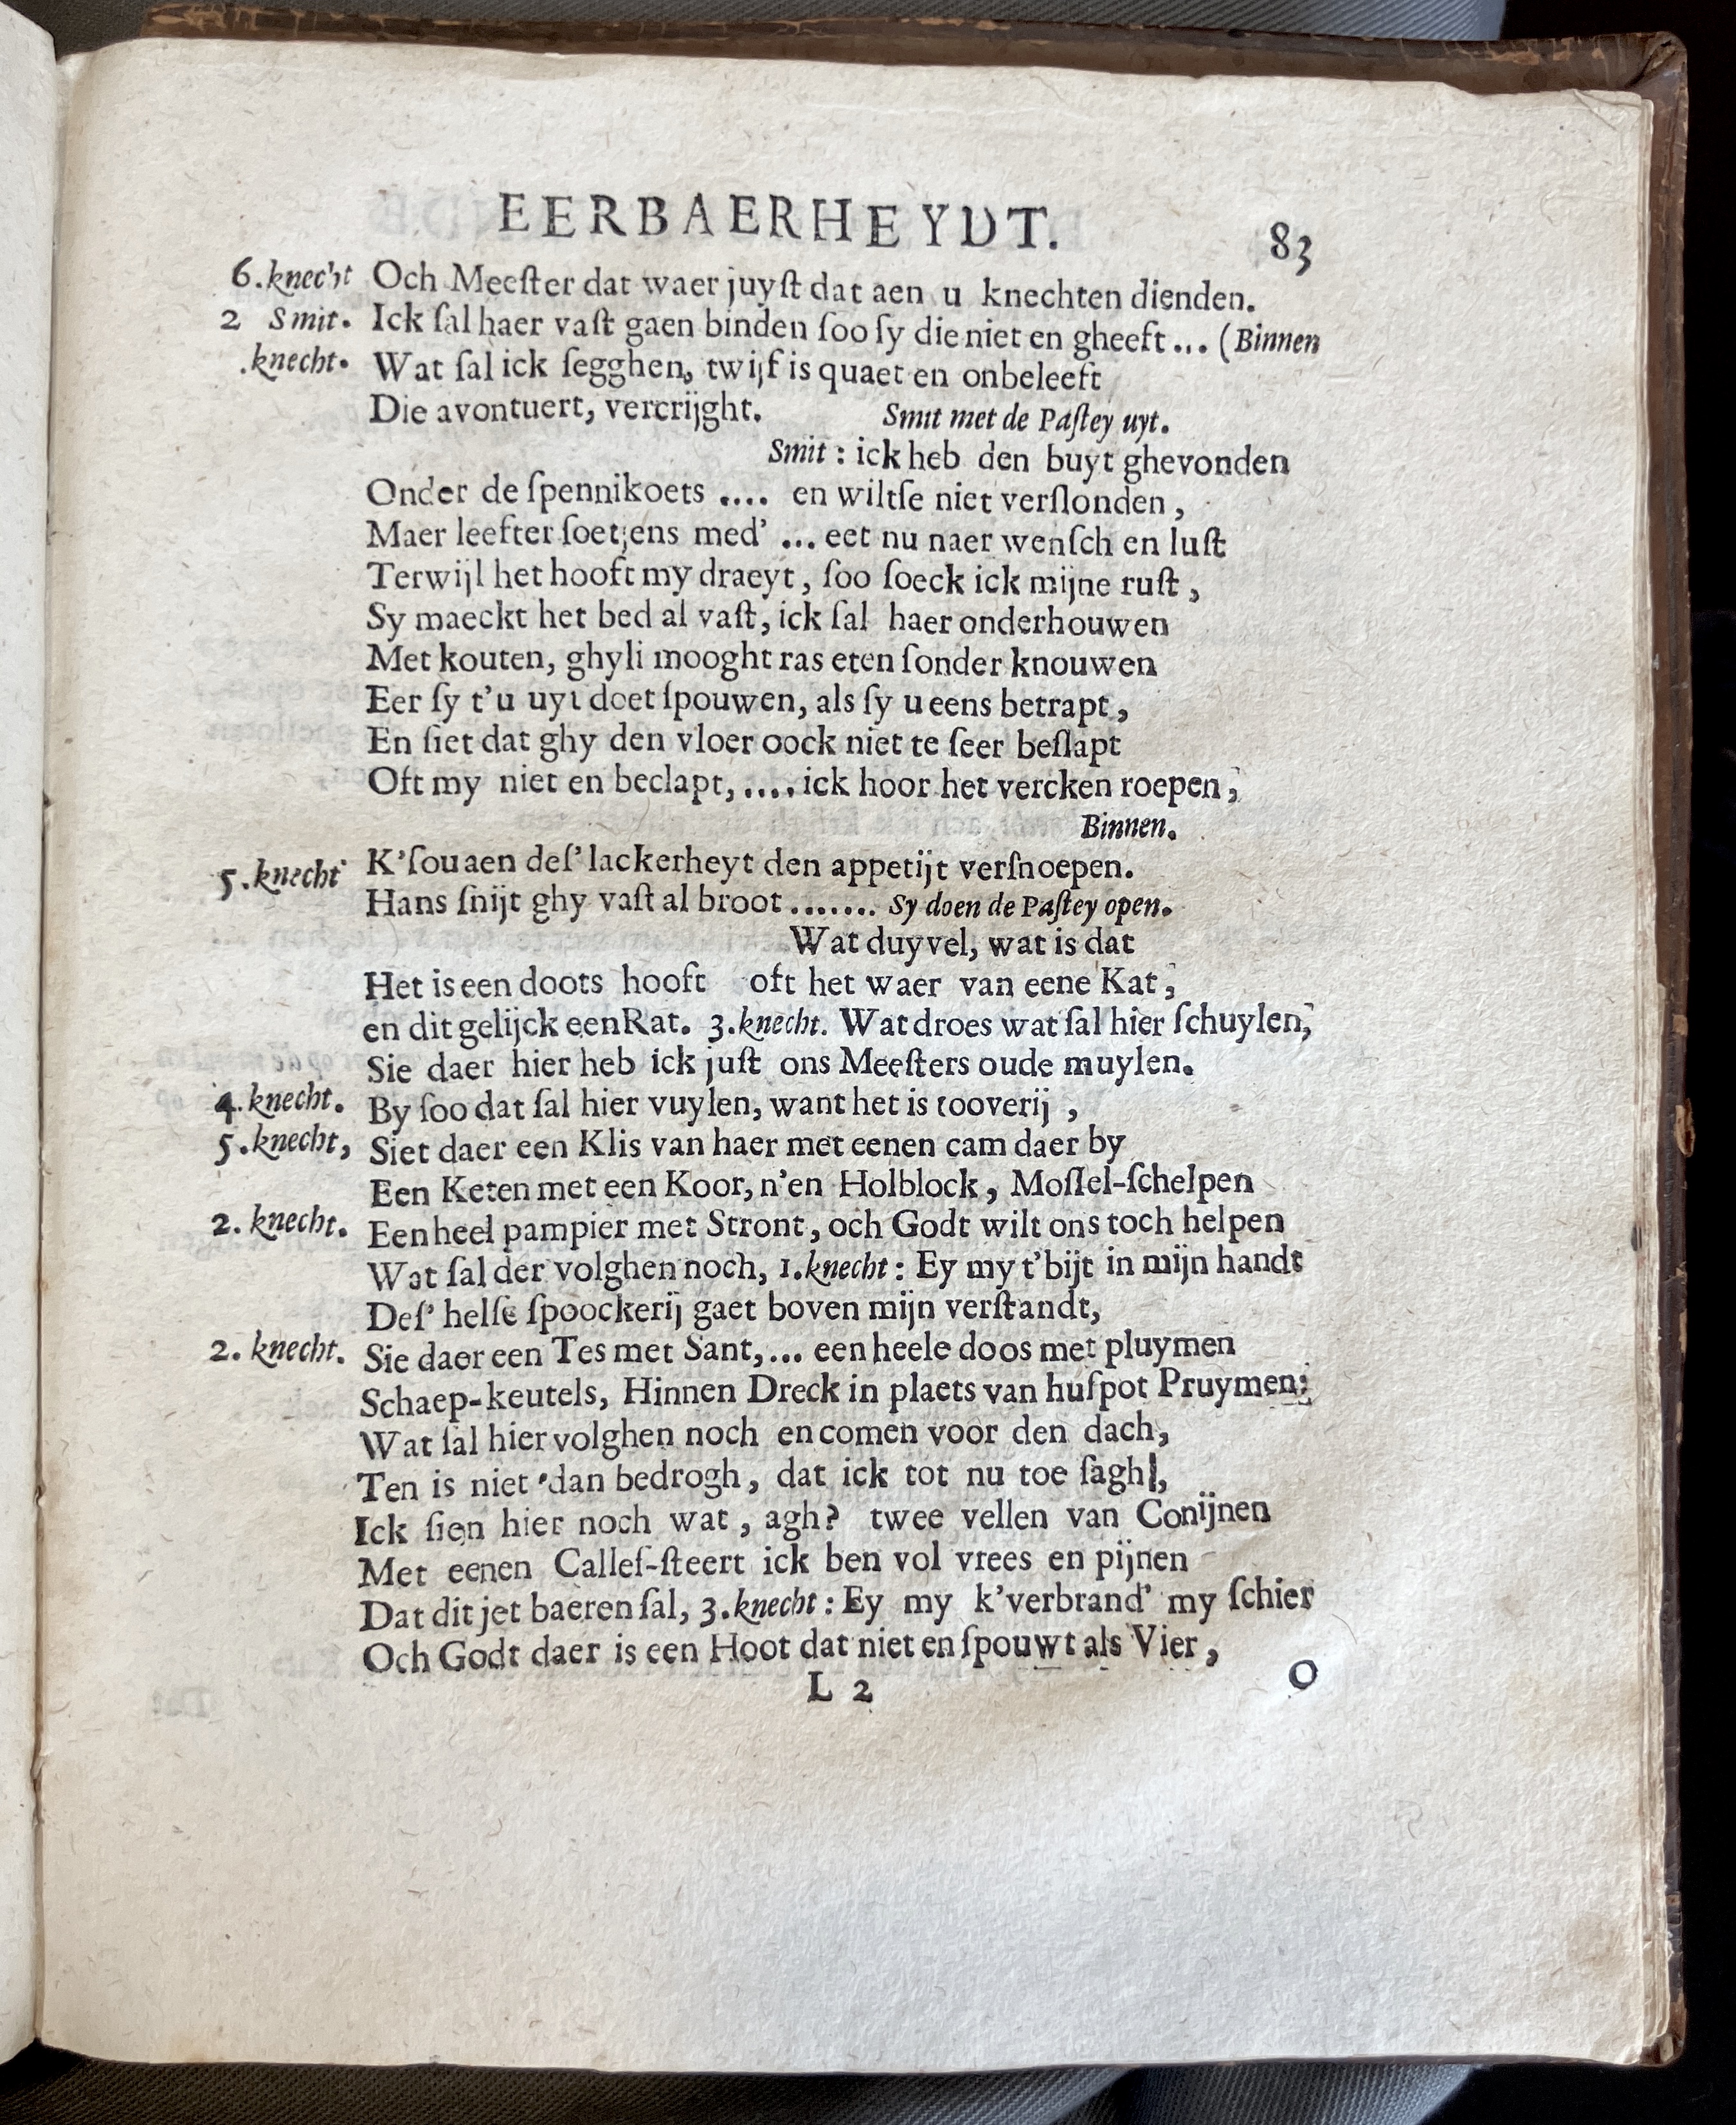 EERBAERHEYDT. 83
6.knecht Och Meeſter dat waer juyſt dat aen u knechten dienden.
2 Smit. Ick ſal haer vaſt gaen binden ſoo ſy die niet en gheeft ... (Binnen
.knecht. Wat ſal ick ſegghen, twijf is quaet en onbeleeft
Die avontuert, vercrijght. Smit met de Paſtey uyt.
Smit : ick heb den buyt ghevonden
Onder de ſpennikoets .... en wiltſe niet verſlonden ,
Maer leefter ſoetjens med' ... eet nu naer wenſch en luſt
Terwijl het hooft my draeyt , ſoo ſoeck ick mijne ruſt ,
Sy maeckt het bed al vaſt, ick ſal haer onderhouwen
Met kouten, ghyli mooght ras eten ſonder knouwen
Eer ſy t'u uyt doet ſpouwen, als ſy u eens betrapt ,
En ſiet dat ghy den vloer oock niet te ſeer beſlapt
Oft my niet en beclapt, .... ick hoor het vercken roepen ,
Binnen.
5.knecht K'ſou aen deſ' lackerheyt den appetijt verſnoepen.
Hans ſnijt ghy vaſt al broot ....... Sy doen de Paſtey open.
Wat duyvel, wat is dat
Het is een doots hooft oft het waer van eene Kat ,
en dit gelijck een Rat. 3.knecht. Wat droes wat ſal hier ſchuylen,
Sie daer hier heb ick juſt ons Meeſters oude muylen.
4.knecht. By ſoo dat ſal hier vuylen, want het is tooverij ,
5.knecht, Siet daer een Klis van haer met eenen cam daer by
Een Keten met een Koor, n'en Holblock , Moſſel-ſchelpen
2. knecht. Een heel pampier met Stront , och Godt wilt ons toch helpen
Wat ſal der volghen noch, 1.knecht : Ey my t'bijt in mijn handt
Deſ' helſe ſpoockerij gaet boven mijn verſtandt,
2. knecht. Sie daer een Tes met Sant, ... een heele doos met pluymen
Schaep-keutels, Hinnen Dreck in plaets van huſpot Pruymen:
Wat ſal hier volghen noch en comen voor den dach,
Ten is niet 'dan bedrogh , dat ick tot nu toe ſagh,
Ick ſien hier noch wat , agh? twee vellen van Conijnen
Met eenen Calleſ-ſteert ick ben vol vrees en pijnen
Dat dit jet baeren ſal, 3.knecht : Ey my k'verbrand' my ſchier
Och Godt daer is een Hoot dat niet en ſpouwt als Vier ,
L 2 O